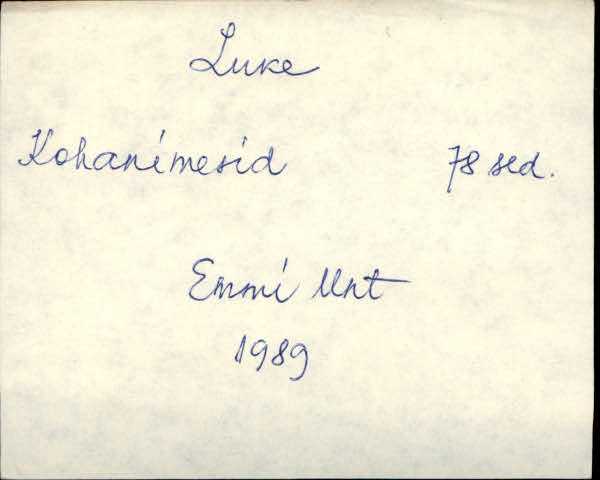 Luke
Kohanimesid 78 sed.
Emmi Unt
1989